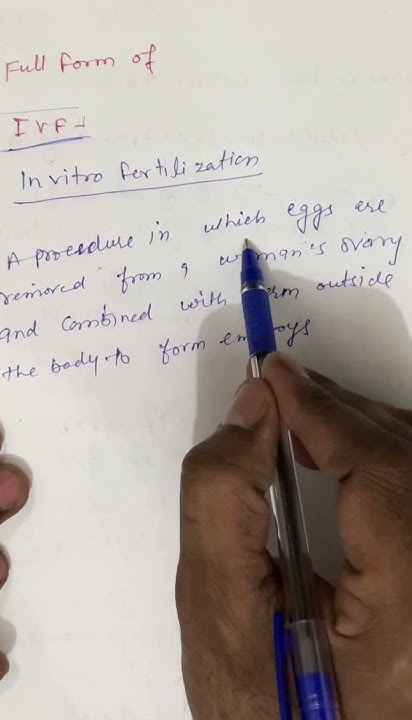 Full form of
IVF
In vitro fertilization
A procedure in which eggs are
removed from a woman's ovary
and combined with outside
the body to form